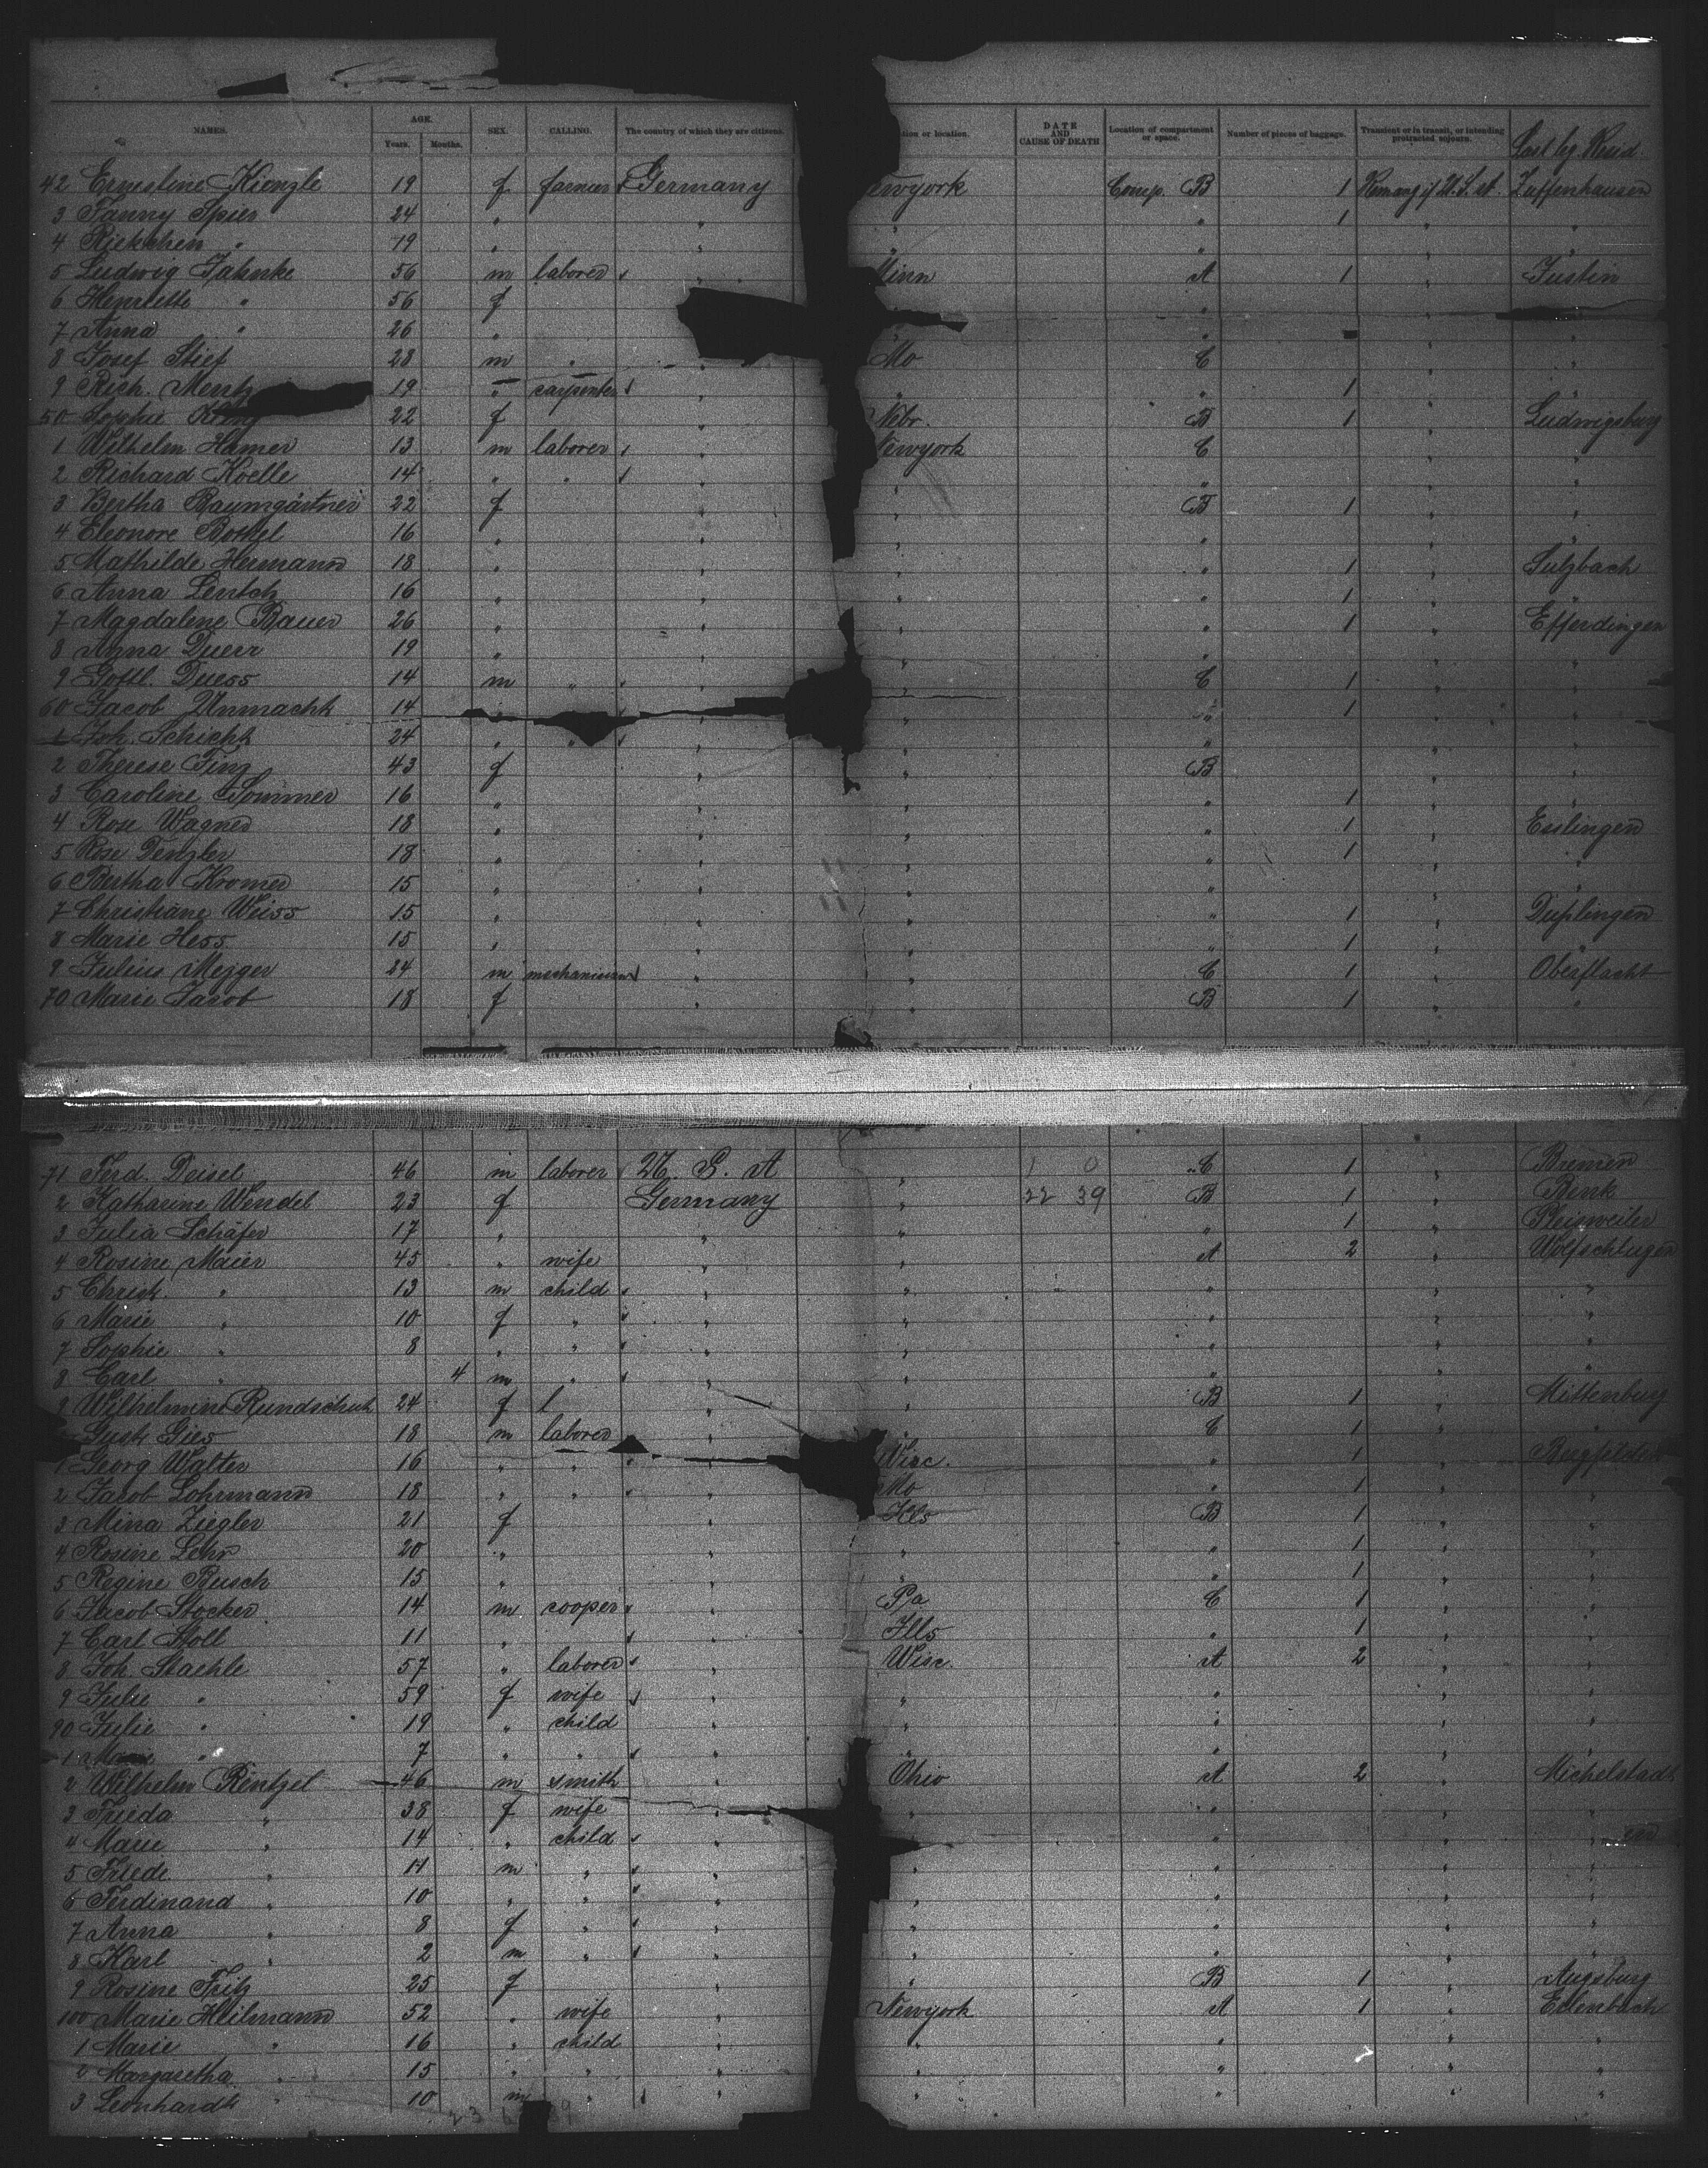 NAMES. AGE. Years. Months. SEX. CALLING. The country of which they are citizens. tion or location. DATE AND CAUSE OF DEATH Location of compartment or space. Number of pieces of baggage. Transient or in transit, or intending protracted sojourn. Last leg. Resid.
42 Ernestine Kienzle 19 f Germany ewyork Comp. B 1 Zuffenhausen
3 Fanny Spier 24 " " " " 1 "
4 Riekchen " 19 " " " "
5 Ludwig Jahnke 56 m laborer " Minn A 1 " Justin
6 Henriette " 56 f
7 Anna " 26 " "
8 Josef Stief 28 m " " Mo C "
9 Rich. Mentz 19 " carpenter " " " 1 "
50 Sophie 22 f " Nebr. B 1 " Ludwigsburg
1 Wilhelm Hamer 13 m laborer " Newyork C " "
2 Richard Koelle 14 " " " " " " "
3 Bertha Baumgärtner 22 f " " B 1 " "
4 Eleonore Bothel 16 " " " " " "
5 Mathilde Hermann 18 " " " " 1 " Sulzbach
6 Anna Lentch 16 " " " " 1 " "
7 Magdalene Bauer 26 " " " " 1 " Efferdingen
8 Anna Duerr 19 " " " " " "
9 Gottl. Duess 14 m " " " C 1 " "
60 Jacob Unmacht 14 " " " 1 " "
1 Joh. Schicht 24 " " " " " "
2 Therese Finz 43 f " " B " "
3 Caroline Sommer 16 " " " " 1 " "
4 Rose Wagner 18 " " " " 1 " Esslingen
5 Rose Denzler 18 " " " " 1 " "
6 Bertha Kromer 15 " " " " " "
7 Christiane Weiss 15 " " " " 1 " Duplingen
8 Marie Hess 15 " " " " 1 " "
9 Julius Mezger 24 m mechanician " " C 1 " Oberflacht
70 Marie Jacob 18 f " " B 1 " "
71 Ferd. Deisel 46 m laborer U. S. A " C 1 Bremen
2 Katharine Wendel 23 f Germany " 22 39 B 1 " Benk
3 Julia Schäfer 17 " " " " 1 " Pleisweiler
4 Rosine Maier 45 " wife " " A 2 " Wolfschlugen
5 Christ. " 13 m child " " " " "
6 Marie " 10 f " " " " " "
7 Sophie " 8 " " " " " " "
8 Carl " 4 m " " " " " "
9 Wilhelmine Rundschuh 24 f " " B 1 " Mittenburg
Gust. Gies 18 m laborer " C 1 " "
1 Georg Walter 16 " " " Wisc. " 1 " Bergfelden
2 Jacob Lohrmann 18 " " " Mo " 1 " "
3 Mina Ziegler 21 f " Ills B 1 " "
4 Rosine Lehr 20 " " " " 1 " "
5 Regine Busch 15 " " " " 1 " "
6 Jacob Stocker 14 m cooper " Pa C 1 " "
7 Carl Stoll 11 " " Ills " 1 " "
8 Joh. Staehle 57 " laborer " Wisc. A 2 " "
9 Julie " 59 f wife " " " " "
90 Julie " 19 " child " " " " "
1 Marie " 7 " " " " " " "
2 Wilhelm Rentzel 46 m smith " Ohio A 2 " Michelstadt
3 Frieda " 38 f wife " " " " "
4 Marie " 14 " child " " " "
5 Friedr. " 11 m " " " " " "
6 Ferdinand " 10 " " " " " " "
7 Anna " 8 f " " " " " "
8 Karl " 2 m " " " " " "
9 Rosine Fritz 25 f " " B 1 " Augsburg
100 Marie Heilmann 52 " wife " Newyork A 1 " Edenbach
1 Marie " 16 " child " " " " "
2 Margaretha " 15 " " " " " " "
3 Leonhardt " 10 m " " " " " "